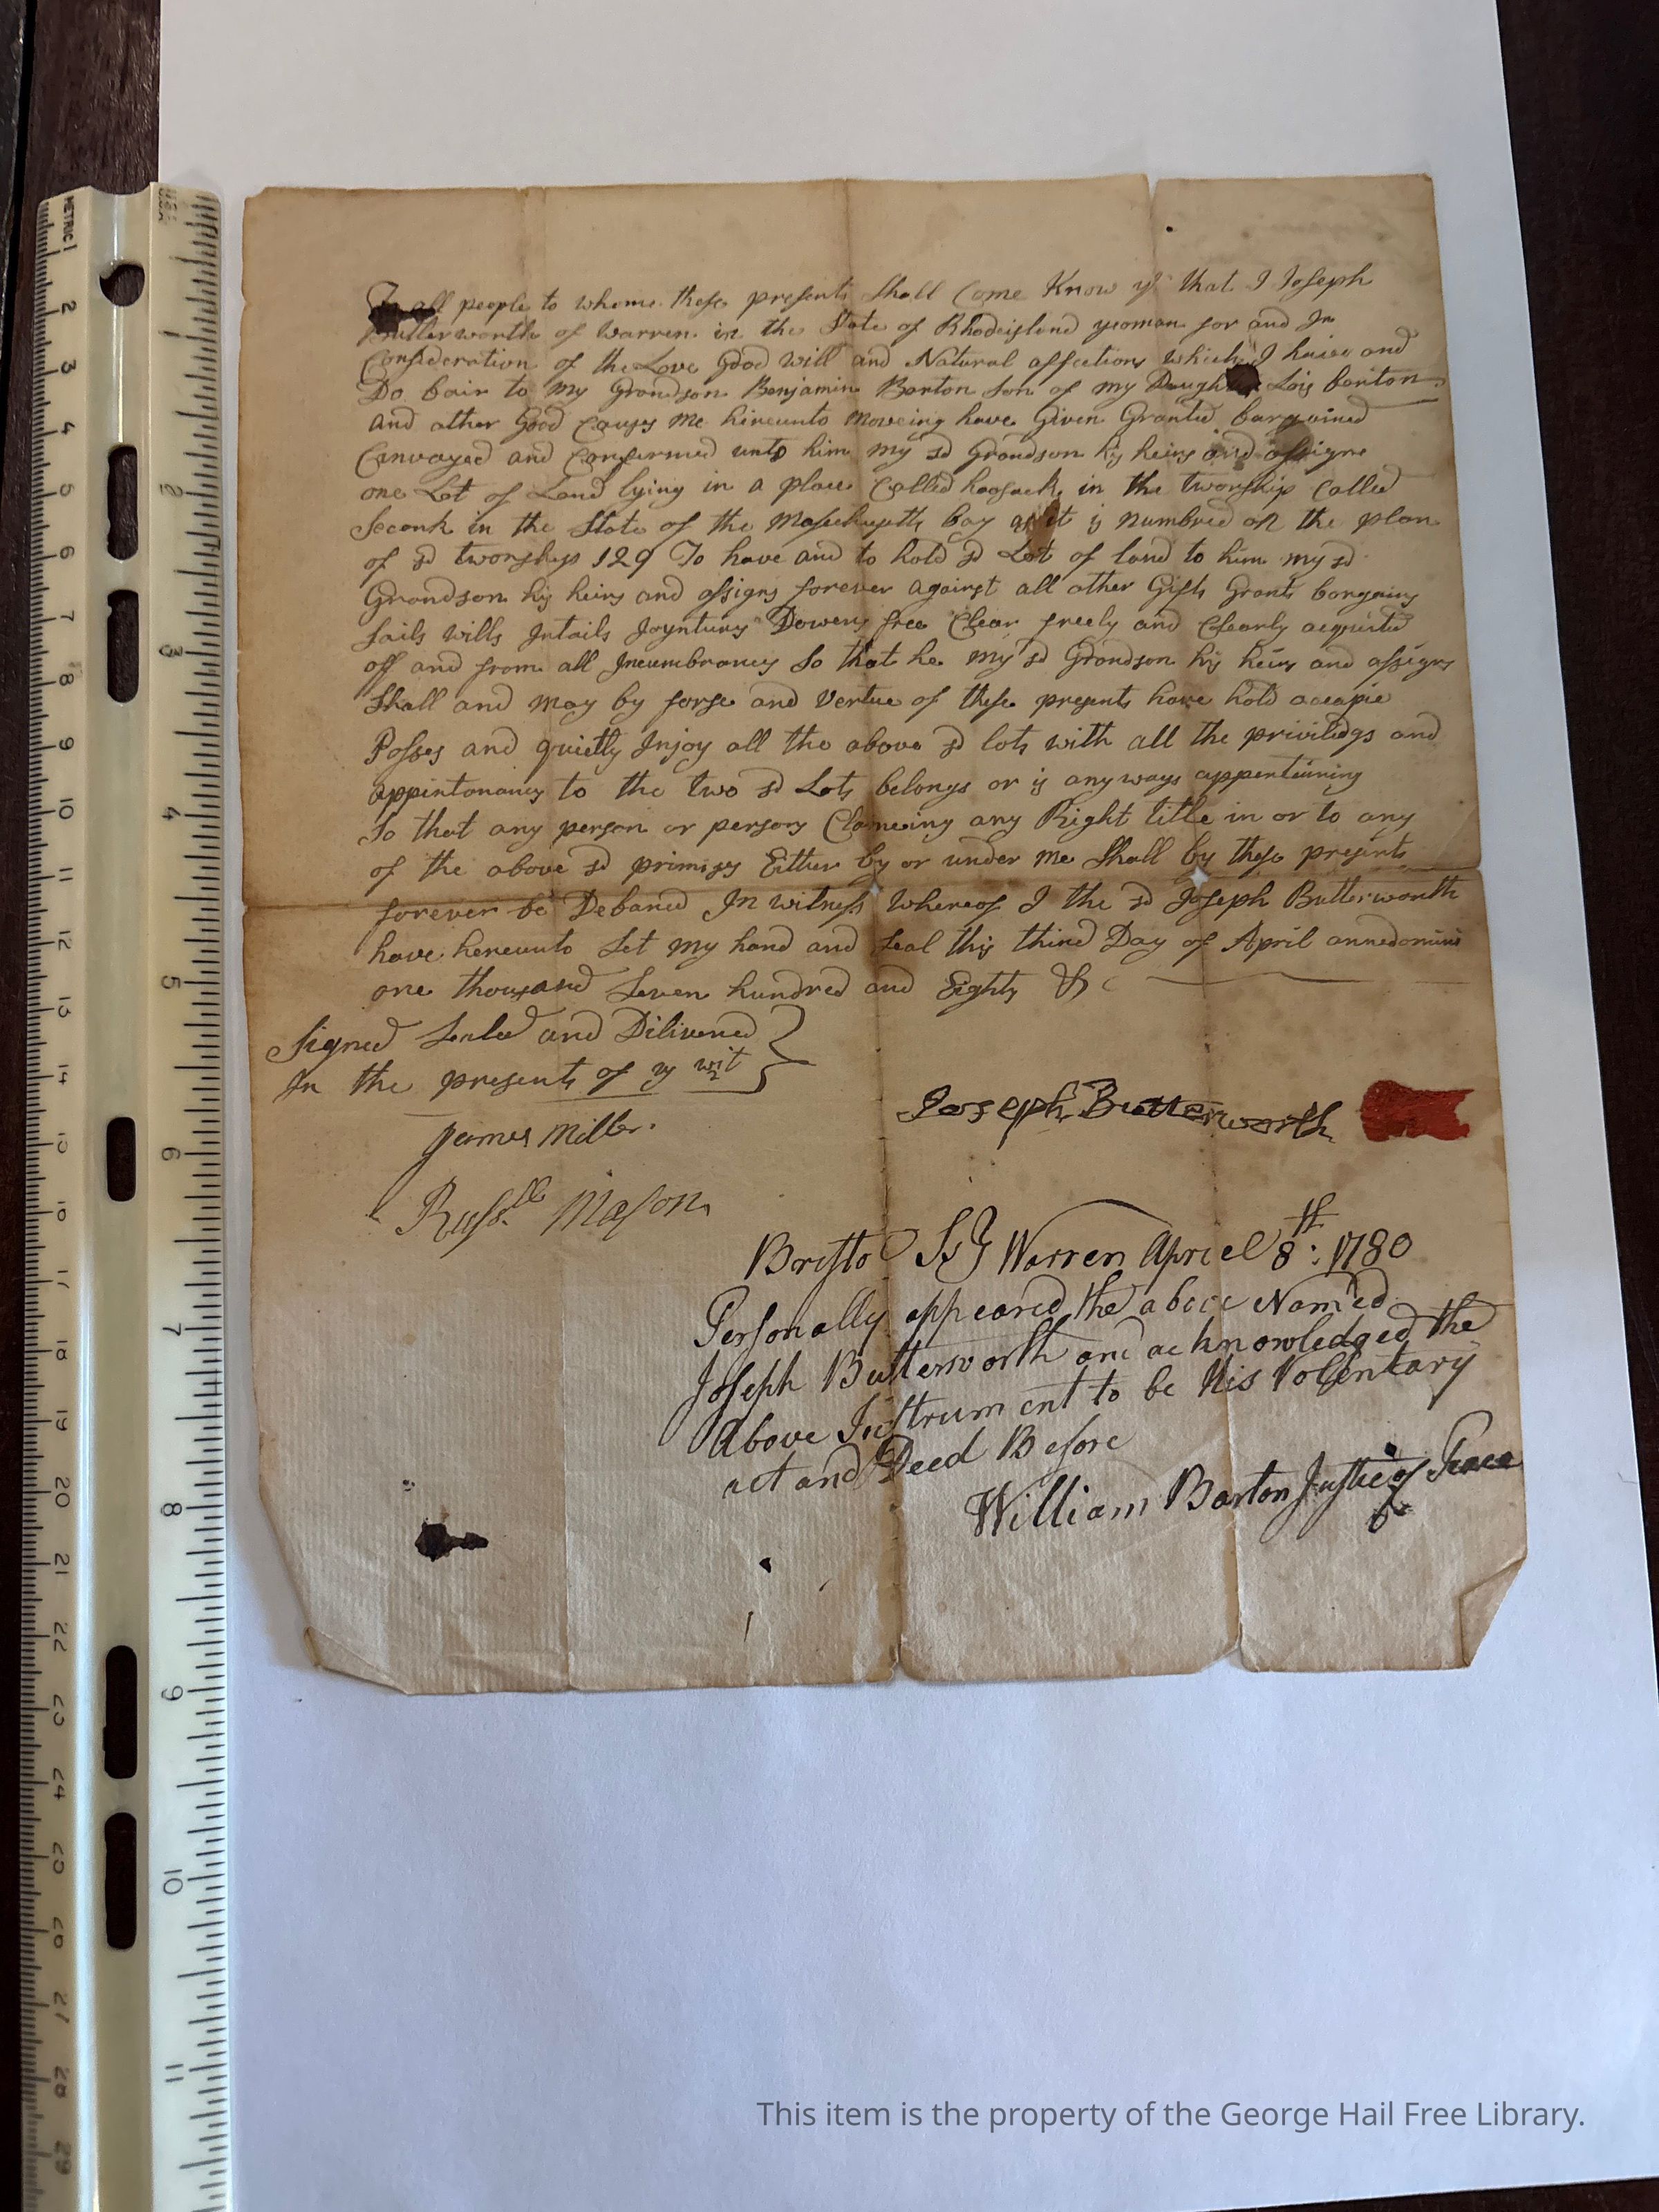 To all people to whome these presents Shall Come Know ye that I Joseph
Butterworth of Warren in the State of Rhodeisland yeoman for and In
Consideration of the Love Good will and Natural affections which I have and
Do bair to my Grandson Benjamin Barton Son of my Daughter Lois barton
and other Good Causes me hireunto moveing have Given Granted bargained
Convayed and Confirmed unto him my sd Grandson his heirs and assigns
one Lot of Land lying in a place Called hoosuck in the townships Called
Seconk in the State of the Masachusetts bay as it is numbred on the plan
of sd townships 129 To have and to hold sd Lot of land to him my sd
Grandson his heirs and assigns forever against all other Gifts Grants bargains
Sails wills Intails Joynturs Dowers free Clear freely and Clearly acquited
off and from all Incumbrancs So that he my sd Grandson his heirs and assigns
Shall and may by forse and vertue of these presents have hold occupie
Posses and quietly Injoy all the above sd lots with all the priviledgs and
appintonancys to the two sd Lots belongs or is any ways appertaining
So that any person or persons Clameing any Right title in or to any
of the above sd primises Either by or under me Shall by these presents
forever be Debared In witness whereof I the sd Joseph Butterworth
have hereunto Set my hand and Seal this third Day of April annedomini
one thousand Seven hundred and Eighty &c
Signed Sealed and Dilivered
In the presents of y wit
James Miller
Russll Mason
Joseph Butterworth
Bristol Ss Warren Apriel 8th: 1780
Personally appeared the above Named
Joseph Butterworth and acknowledged the
Above Instrument to be His Volentary
act and Deed Before
William Barton Justice of Peace
METRIC 1
2
3
4
5
6
7
8
9
10
11
12
13
14
15
16
17
18
19
20
21
22
23
24
25
26
27
28
29
1
2
3
4
5
6
7
8
9
10
11
This item is the property of the George Hail Free Library.